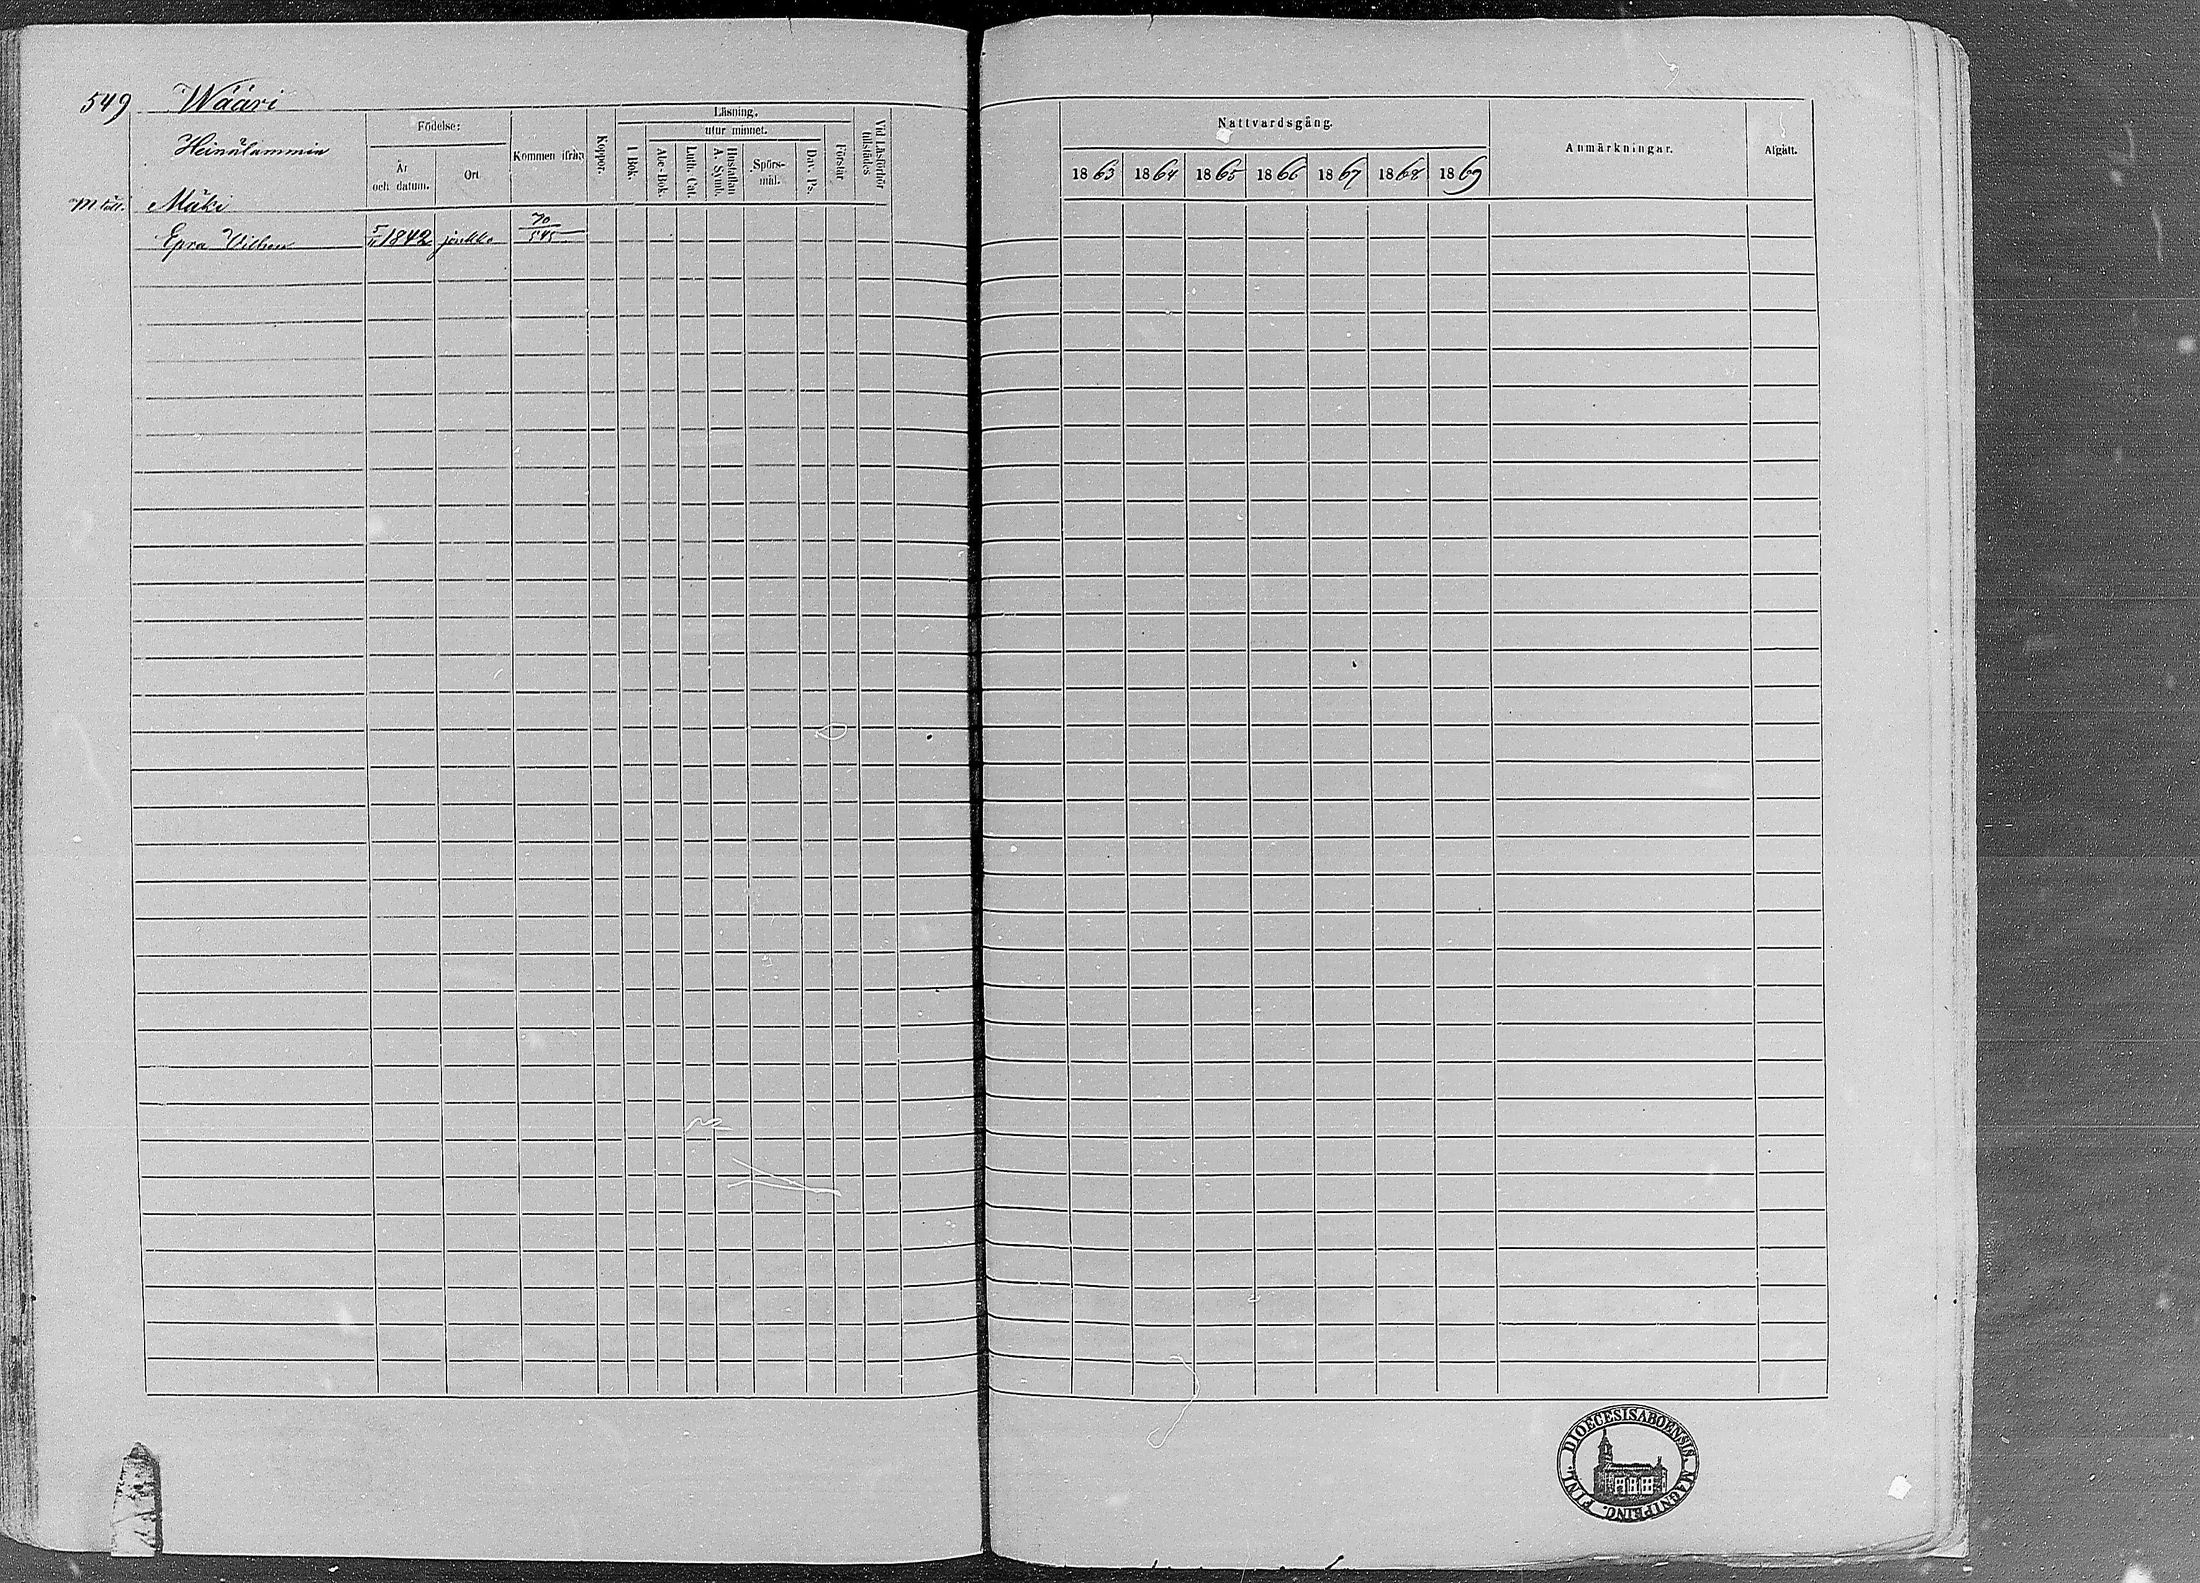 549 Wääri
Heinälammin
Födelse:
År och datum.
Ort
Kommen ifrån
Koppor.
Läsning.
utur minnet.
I Bok.
Abc-Bok.
Luth. Cat.
Hustaflan A. Symb.
Spörsmål.
Dav. Ps.
Förstår
Vid Läsförhör tillstädes
Nattvardsgång.
1863 1864 1865 1866 1867 1868 1869
Anmärkningar.
Afgått.
Mäki
Epra Vilhen 1842 70/545
DIOECESIS ABOENSIS MAGNI PRINC. FINL.